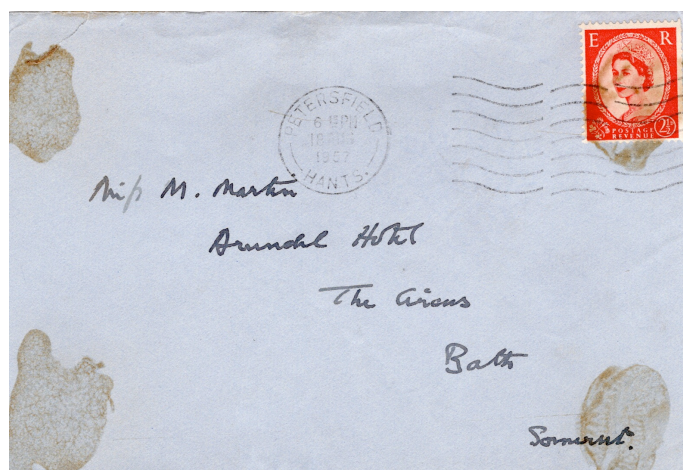 E R
POSTAGE
REVENUE 2½
PETERSFIELD
6 15 PM
1957
HANTS.
Miss M. Martin
Arundel Hotel
The Circus
Bath
Somerset.